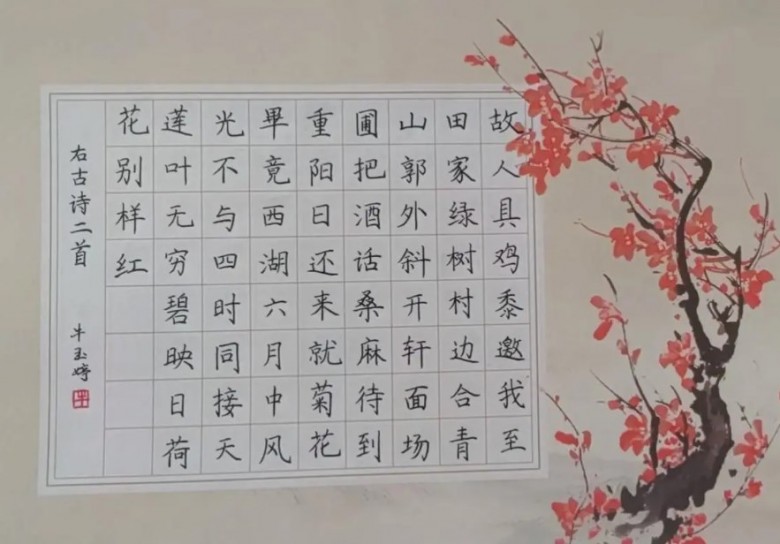 故人具鸡黍邀我至
田家绿树村边合青
山郭外斜开轩面场
圃把酒话桑麻待到
重阳日还来就菊花
畢竟西湖六月中风
光不与四时同接天
莲叶无穷碧映日荷
花别样红
右古诗二首 牛玉婷